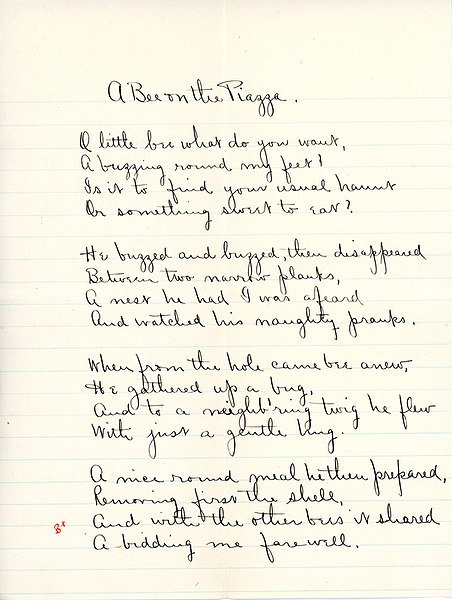 A Bee on the Piazza.
O little bee what do you want,
A buzzing round my feet?
Is it to find your usual haunt
Or something sweet to eat?
He buzzed and buzzed, then disappeared
Between two narrow planks,
A nest he had I was afeard
And watched his naughty pranks.
When from the hole came bee anew,
He gathered up a bug,
And to a neighb'ring twig he flew
With just a gentle hug.
A nice round meal he then prepared,
Removing first the shell,
And with the other bees it shared
A bidding me farewell.